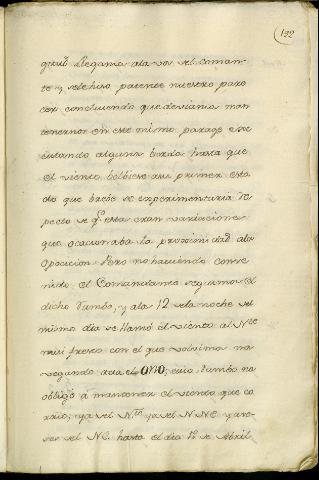 122
quarto llegamos ala vos del coman-
te y sele hiso patente nuestro pare
cer concluiendo que deviamos man
tenernos en este mismo parage exe
cutando algunos bordos hasta que
el viento bolbiese asu primer esta
do que breve se experimentaria Res
pecto de qe estas eran variaciones
que ocacionaba la proximidad ala
oposicion Pero no haviendo conve
nido el Comandante seguimos el
dicho rumbo, y ala 12 dela noche del
mismo dia se llamó el viento al Nte
mui fresco con el que bolvimos na
vegando aza el ONO, cuio rumbo no
obligó á mantener el viento que co
rrio, ya del Nte ya del N NE y a ve-
ses del NE. hasta el dia 1º de Abril